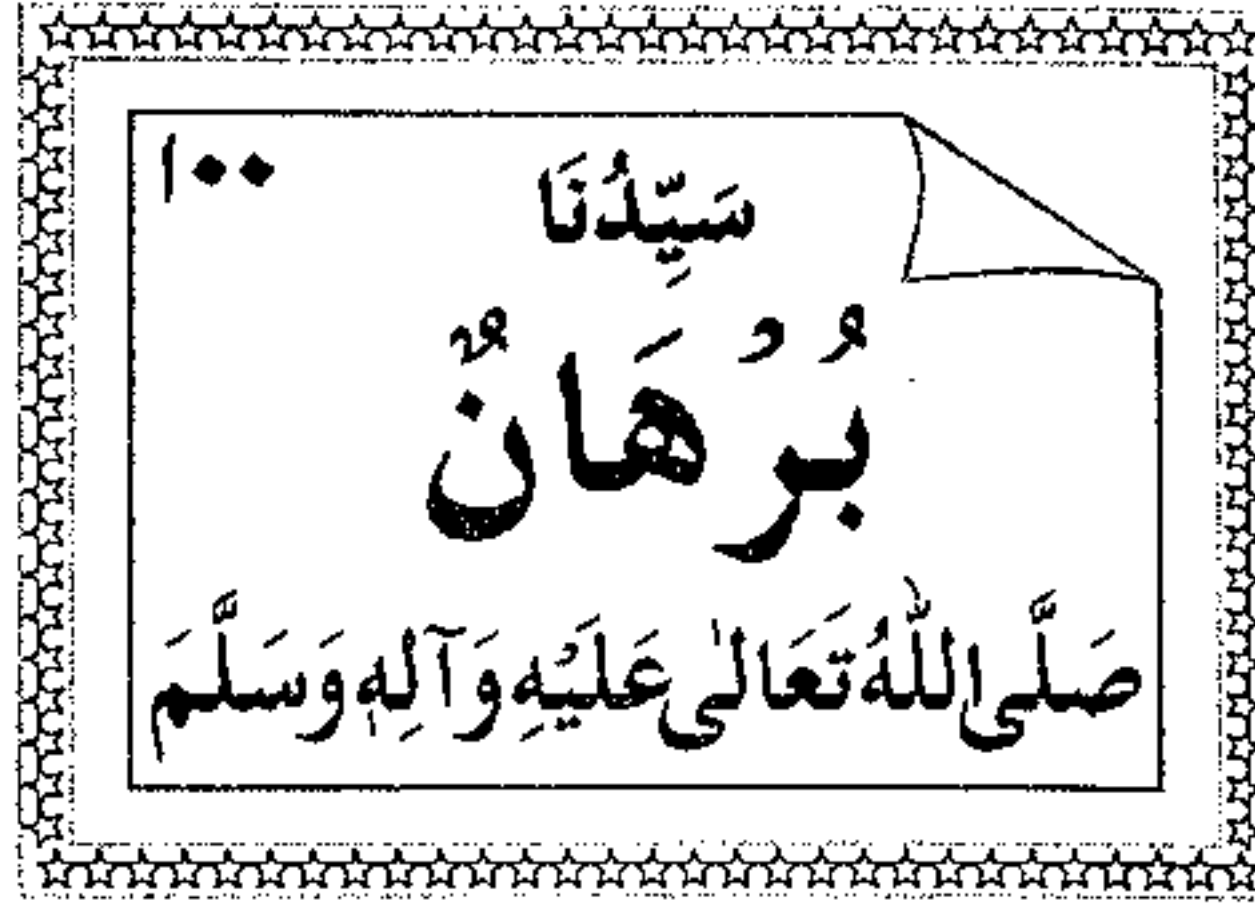 ۱۰۰
سَيِّدُنَا
بُرْهَانٌ
صَلَّی اللّٰهُ تَعَالٰی عَلَيْهِ وَآلِهٖ وَسَلَّمَ